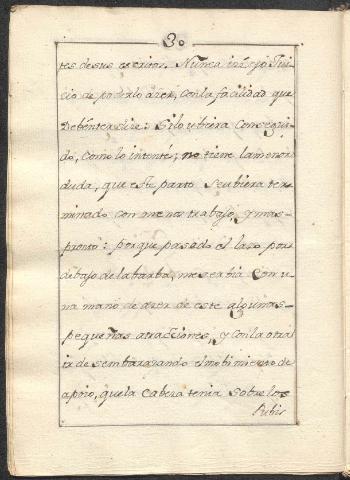 30
tes de sus escritos. Nunca in
cio de poderlo azer, con la facilidad que
Debénter dize: Silo ubiera consegui-
do, como lo intenté; no tiene la menor
duda, que este parto se ubiera ter-
minado con menos trabajo, y mas-
pronto: porque pasado el laso por
debajo de la barba, me serbia con u-
na mano de azer de este algunas-
pequeñas atracciones, y con la otra
ir desembarazando el mobimiento de
apoio, que la Cabeza tenia sobre los
Pubis